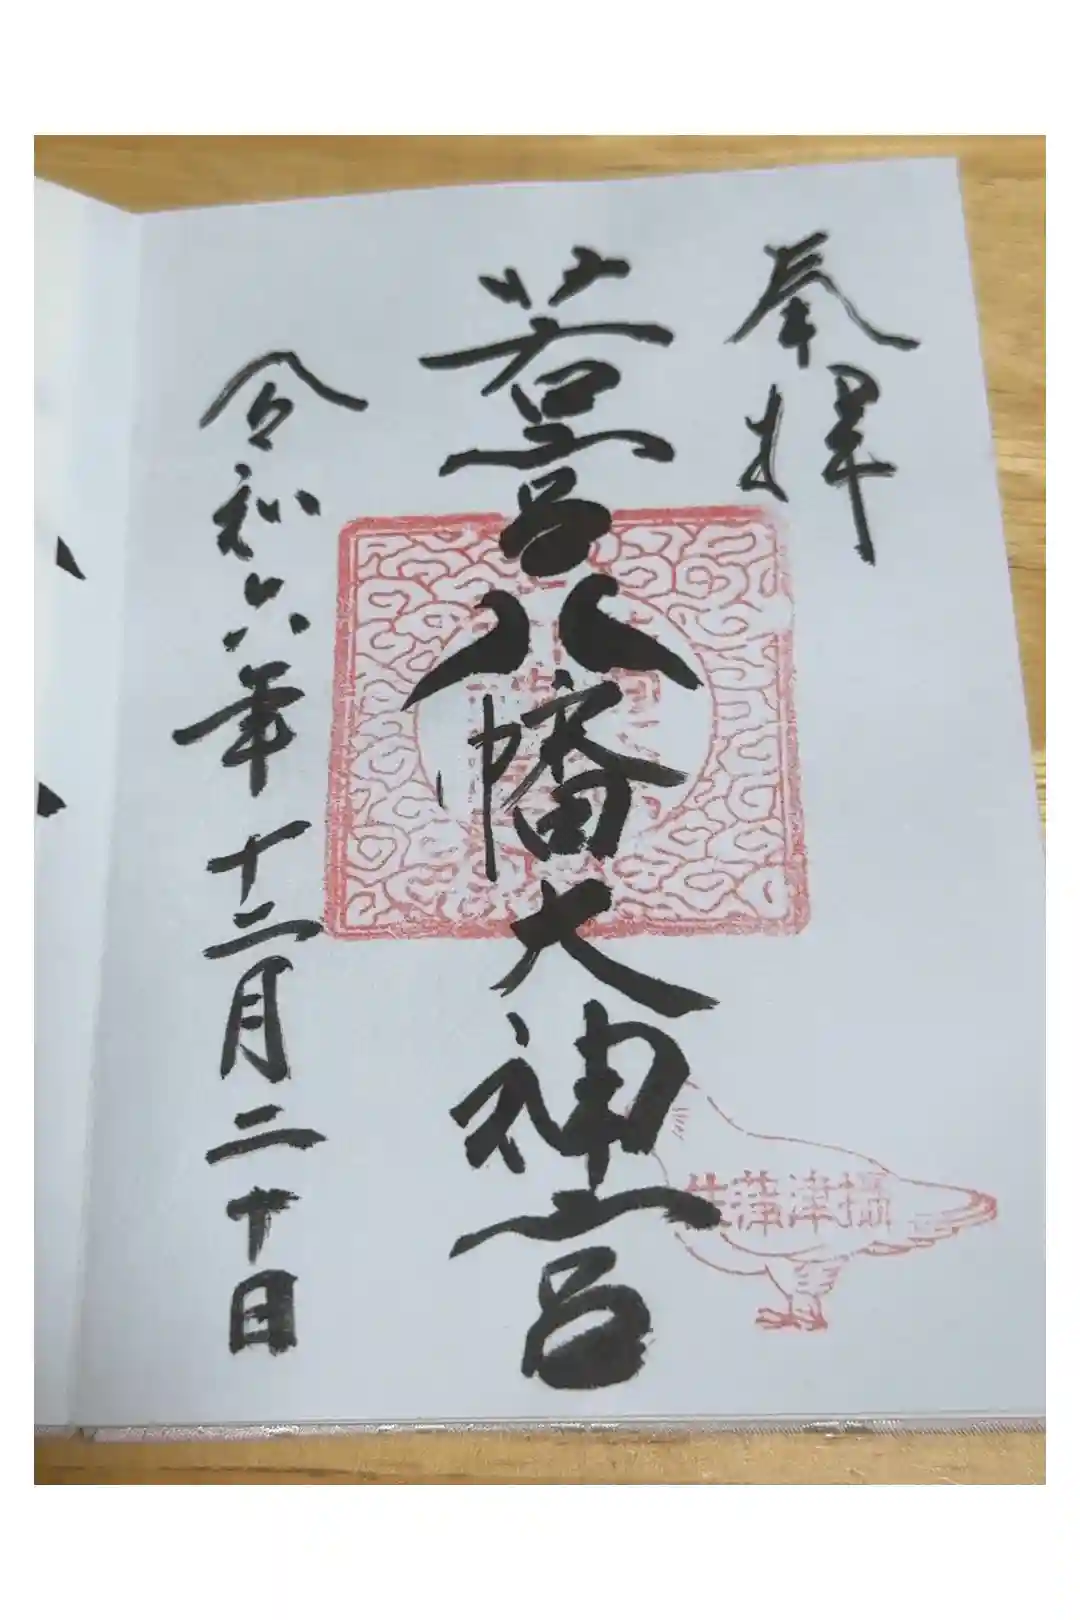 奉拝
若宮八幡大神宮
令和六年十二月二十日
攝津蒲生